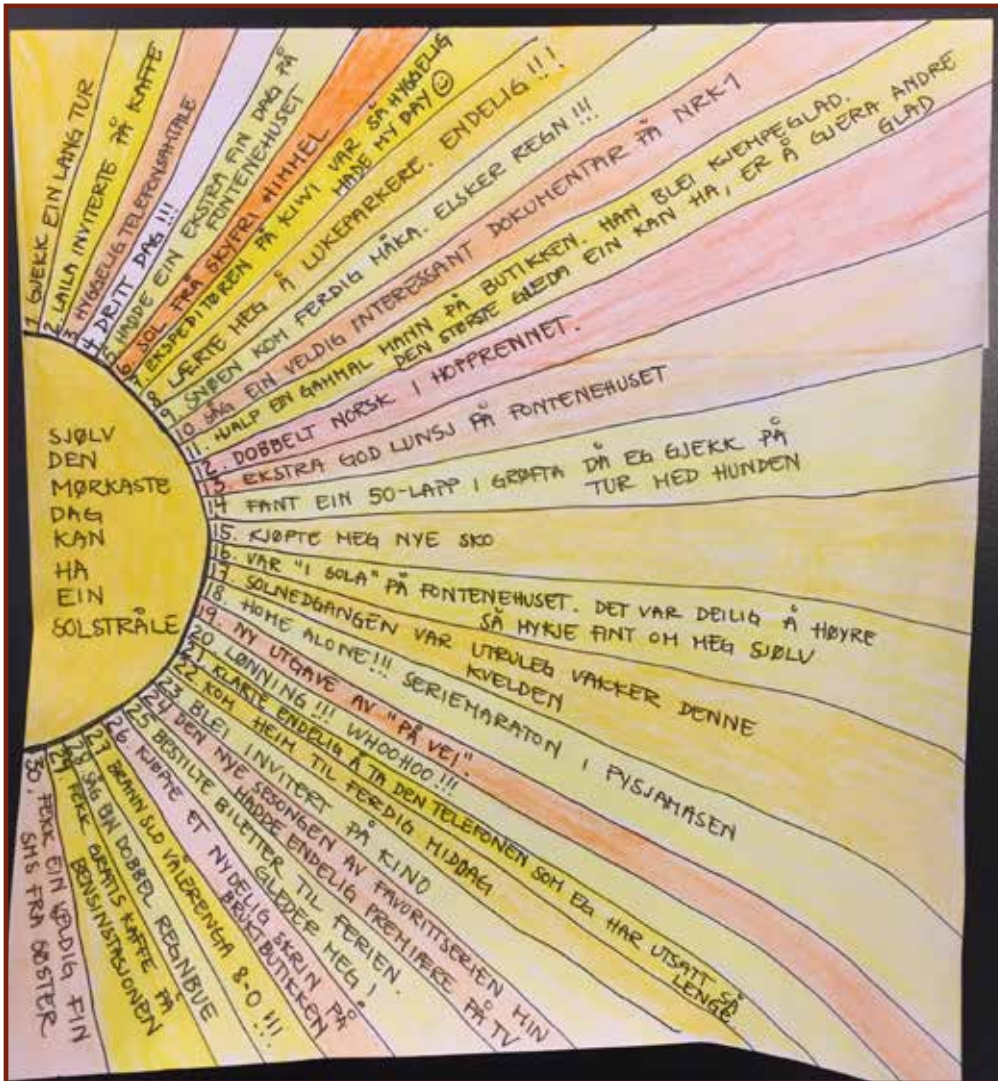 SJØLV
DEN
MØRKASTE
DAG
KAN
HA
EIN
SOLSTRÅLE
1. GJEKK EIN LANG TUR
2. LAILA INVITERTE PÅ KAFFE
3 HYGGELIG TELEFONSAMTALE
4 DRITT DAG!!!
5 HADDE EIN EKSTRA FIN DAG PÅ
FONTENEHUSET
6. SOL FRÅ SKYFRI HIMMEL
7. EKSPEDITØREN PÅ KIWI VAR SÅ HYGGELIG
MADE MY DAY
8 LÆRTE MEG Å LUKEPARKERE. ENDELIG!!!
9 SNØEN KOM FERDIG MÅKA. ELSKER REGN!!!
10 SÅG EIN VELDIG INTERESSANT DOKUMENTAR PÅ NRK1
11. HJALP EN GAMMAL MANN PÅ BUTIKKEN. HAN BLEI KJEMPEGLAD.
DEN STØRSTE GLEDA EIN KAN HA, ER Å GJERA ANDRE
GLAD
12. DOBBELT NORSK I HOPPRENNET.
13. EKSTRA GOD LUNSJ PÅ FONTENEHUSET
14 FANT EIN 50-LAPP I GRØFTA DÅ EG GJEKK PÅ
TUR MED HUNDEN
15. KJØPTE MEG NYE SKO
16. VAR "I SOLA" PÅ FONTENEHUSET. DET VAR DEILIG Å HØYRE
SÅ MYKJE FINT OM MEG SJØLV
17 SOLNEDGANGEN VAR UTRULEG VAKKER DENNE
KVELDEN
18. HOME ALONE!!! SERIEMARATON I PYSJAMASEN
19. NY UTGAVE AV "PÅ VEI".
20 LØNNING!!! WHOOHOO!!!
21. KLARTE ENDELIG Å TA DEN TELEFONEN SOM EG HAR UTSATT SÅ
LENGE
22 KOM HEIM TIL FERDIG MIDDAG
23 BLEI INVITERT PÅ KINO
24 DEN NYE SESONGEN AV FAVORITTSERIEN MIN
HADDE ENDELIG PREMIÆRE PÅ TV
25 BESTILTE BILETTER TIL FERIEN.
GLEDER MEG!
26. KJØPTE ET NYDELIG SKRIN PÅ
BRUKTBUTIKKEN
27 BRANN SLO VÅLERENGA 8-0!!!
28 SÅG EN DOBBEL REGNBUE
29 FEKK GRATIS KAFFE PÅ
BENSINSTASJONEN
30. FEKK EIN VELDIG FIN
SMS FRA SØSTER